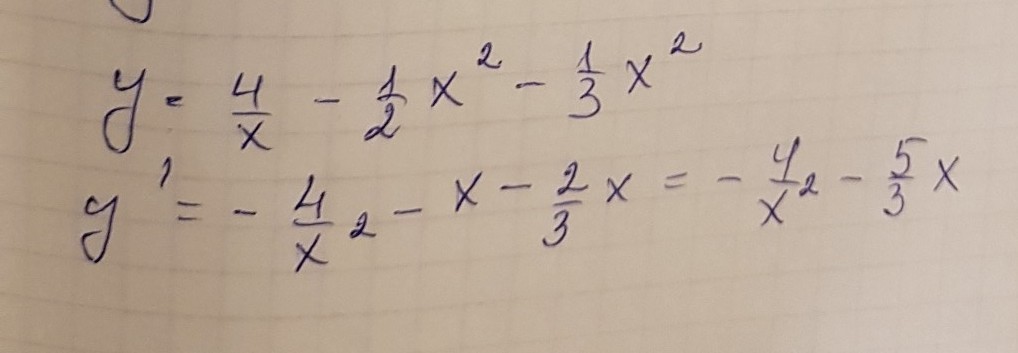 y = 4/x - 1/2 x² - 1/3 x²
y' = - 4/x² - x - 2/3 x = - 4/x² - 5/3 x